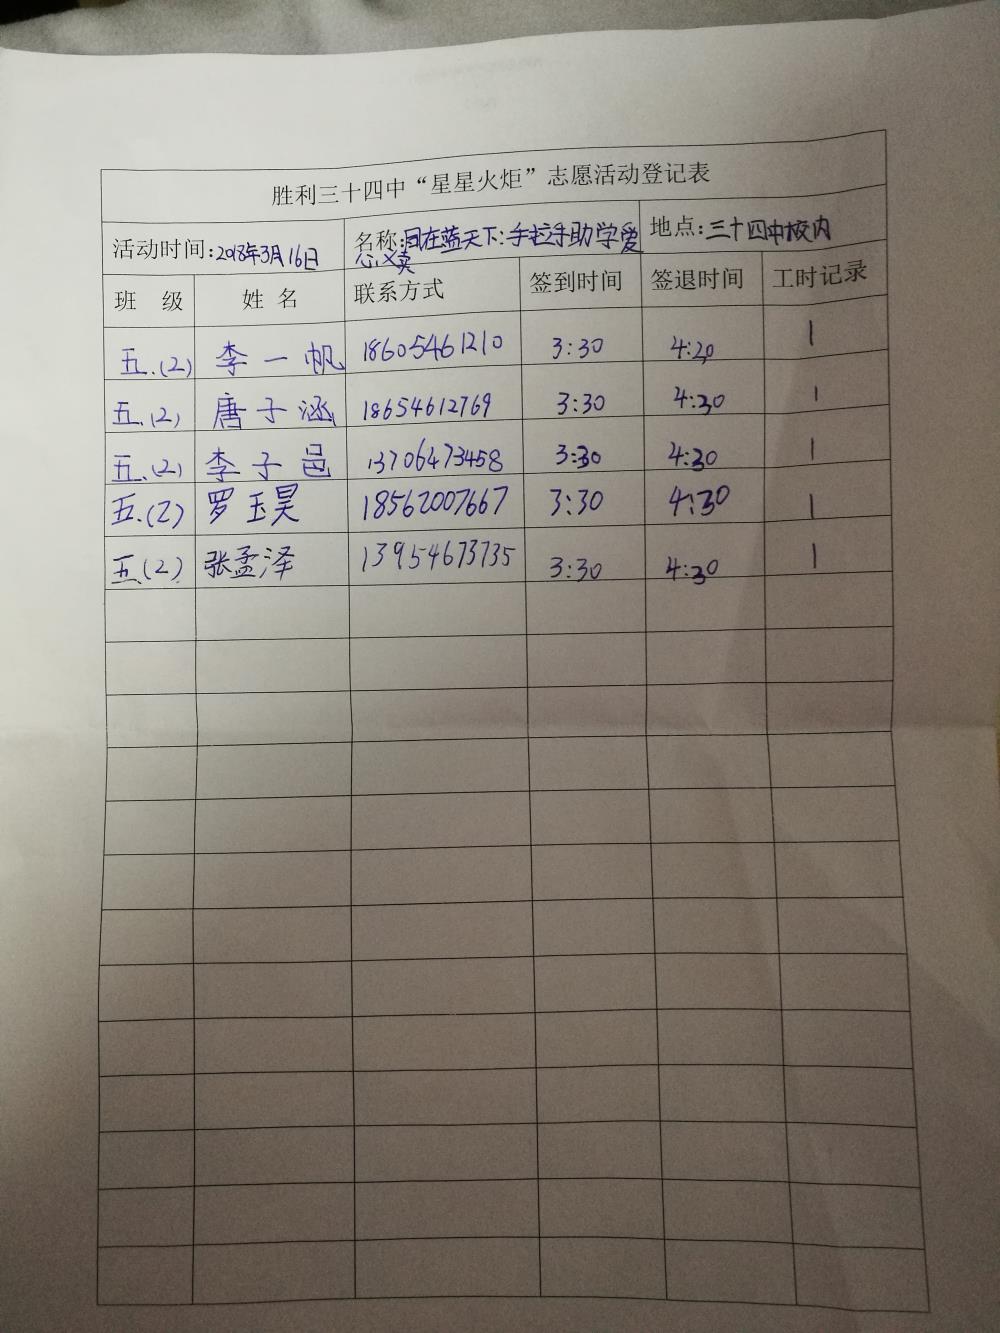 胜利三十四中“星星火炬”志愿活动登记表
活动时间:2018年3月16日 名称:同在蓝天下:手拉手助学爱心义卖 地点:三十四中校内
班 级 姓 名 联系方式 签到时间 签退时间 工时记录
五.(2) 李一帆 18605461210 3:30 4:20 1
五.(2) 唐子涵 18654612769 3:30 4:30 1
五.(2) 李子邑 13706473458 3:30 4:30 1
五.(2) 罗玉昊 18562007667 3:30 4:30 1
五.(2) 张孟泽 13954673735 3:30 4:30 1